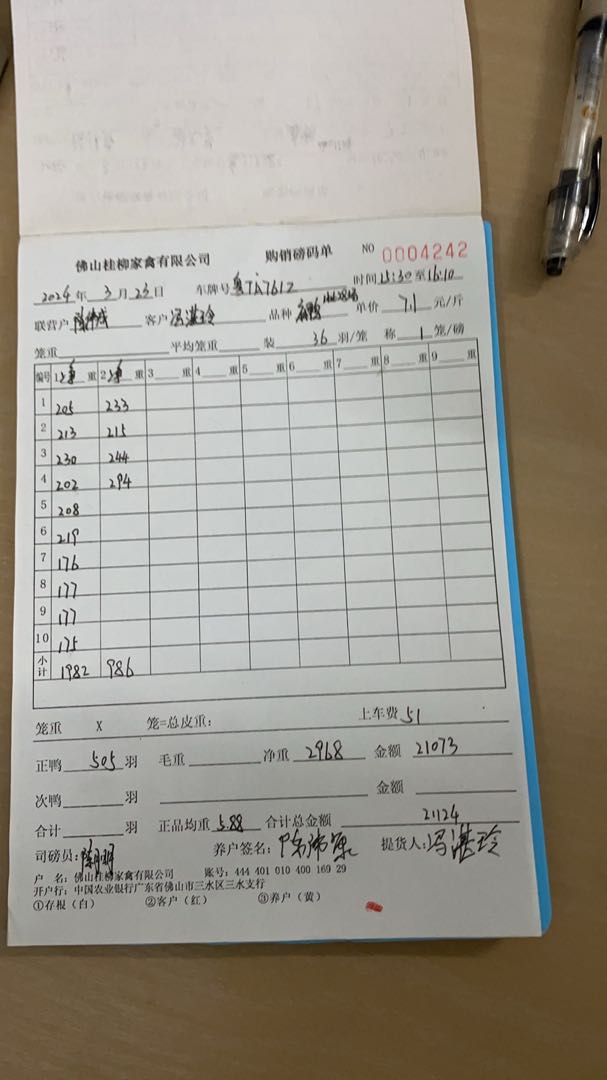 佛山桂柳家禽有限公司 购销磅码单 NO 0004242
2024 年 3 月 23 日 车牌号 粤TA7612 时间 15:30 至 16:10
联营户 客户 冯湛玲 品种 单价 7.1 元/斤
笼重 平均笼重 装 36 羽/笼 称 1 笼/磅
编号 1 净 重 2 净 重 3 重 4 重 5 重 6 重 7 重 8 重 9 重
1 205 233
2 213 215
3 230 244
4 202 294
5 208
6 219
7 176
8 177
9 177
10 175
小计 1982 986
笼重 X 笼=总皮重: 上车费 51
正鸭 505 羽 毛重 净重 2968 金额 21073
次鸭 羽 金额
合计 羽 正品均重 5.88 合计总金额 21124
司磅员: 养户签名: 提货人: 冯湛玲
户 名: 佛山桂柳家禽有限公司 账号: 444 401 010 400 169 29
开户行: 中国农业银行广东省佛山市三水区三水支行
①存根(白) ②客户(红) ③养户(黄)